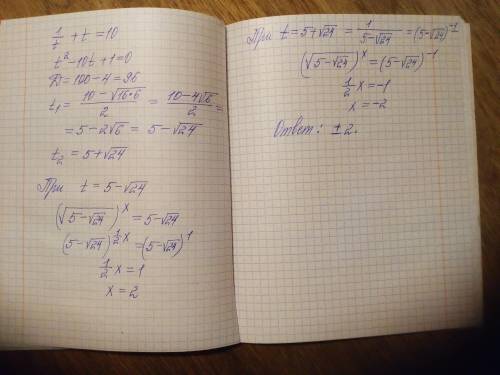 1/t + t = 10
t² - 10t + 1 = 0
D = 100 - 4 = 96
t₁ = (10 - √(16·6))/2 = (10 - 4√6)/2 =
= 5 - 2√6 = 5 - √24
t₂ = 5 + √24
При t = 5 - √24
(√(5 - √24))ˣ = 5 - √24
(5 - √24)^(1/2 x) = (5 - √24)¹
1/2 x = 1
x = 2
При t = 5 + √24 = 1/(5 - √24) = (5 - √24)⁻¹
(√(5 - √24))ˣ = (5 - √24)⁻¹
1/2 x = -1
x = -2
Ответ: ± 2.